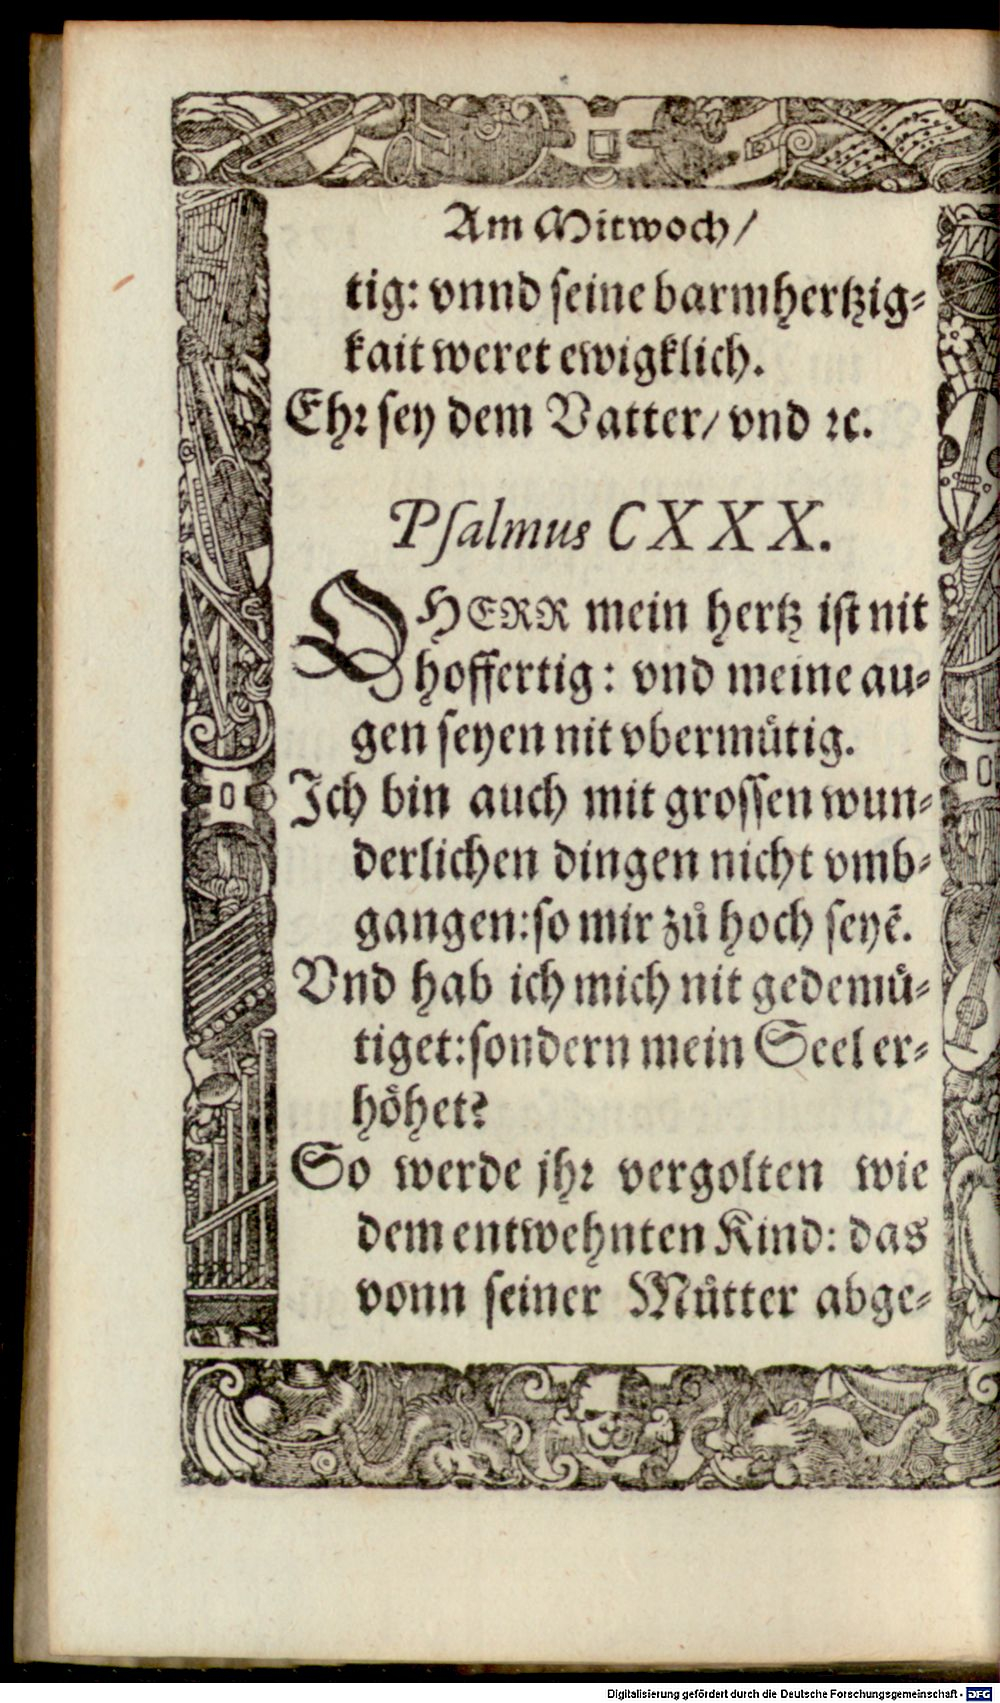 Am Mitwoch/
tig: vnnd seine barmhertzig⸗
kait weret ewigklich.
Ehꝛ sey dem Vatter/ vnd ꝛc.
Psalmus CXXX.
O HERR mein hertz ist nit
hoffertig: vnd meine au⸗
gen seyen nit vbermuͤtig.
Ich bin auch mit grossen wun⸗
derlichen dingen nicht vmb⸗
gangen: so mir zuͦ hoch seyẽ.
Vnd hab ich mich nit gedemuͤ⸗
tiget: sondern mein Seel er⸗
hoͤhet?
So werde jhꝛ vergolten wie
dem entwehnten Kind: das
vonn seiner Muͦtter abge⸗
Digitalisierung gefördert durch die Deutsche Forschungsgemeinschaft - DFG